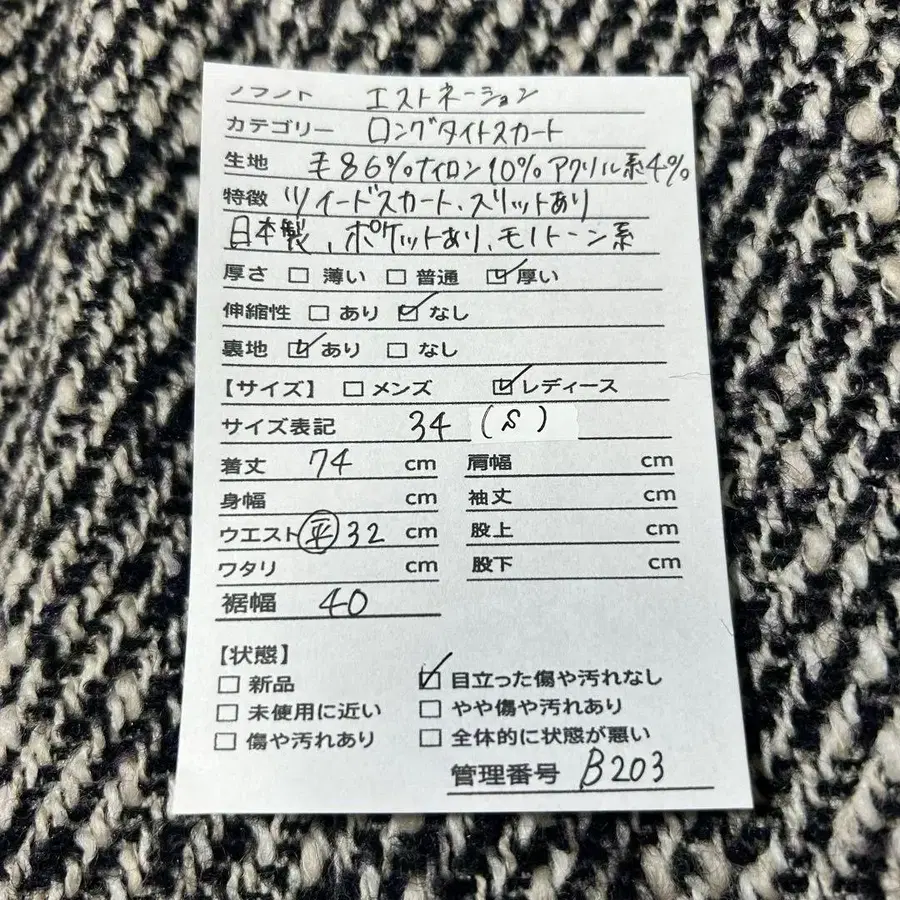 ブランド エストネーション
カテゴリー ロングタイトスカート
生地 毛86%ナイロン10%アクリル系4%
特徴 ツイードスカート、スリットあり
日本製、ポケットあり、モノトーン系
厚さ □ 薄い □ 普通 ☑ 厚い
伸縮性 □ あり ☑ なし
裏地 ☑ あり □ なし
【サイズ】 □ メンズ ☑ レディース
サイズ表記 34 (S)
着丈 74 cm 肩幅 cm
身幅 cm 袖丈 cm
ウエスト㊥32 cm 股上 cm
ワタリ cm 股下 cm
裾幅 40
【状態】
□ 新品 ☑ 目立った傷や汚れなし
□ 未使用に近い □ やや傷や汚れあり
□ 傷や汚れあり □ 全体的に状態が悪い
管理番号 B203